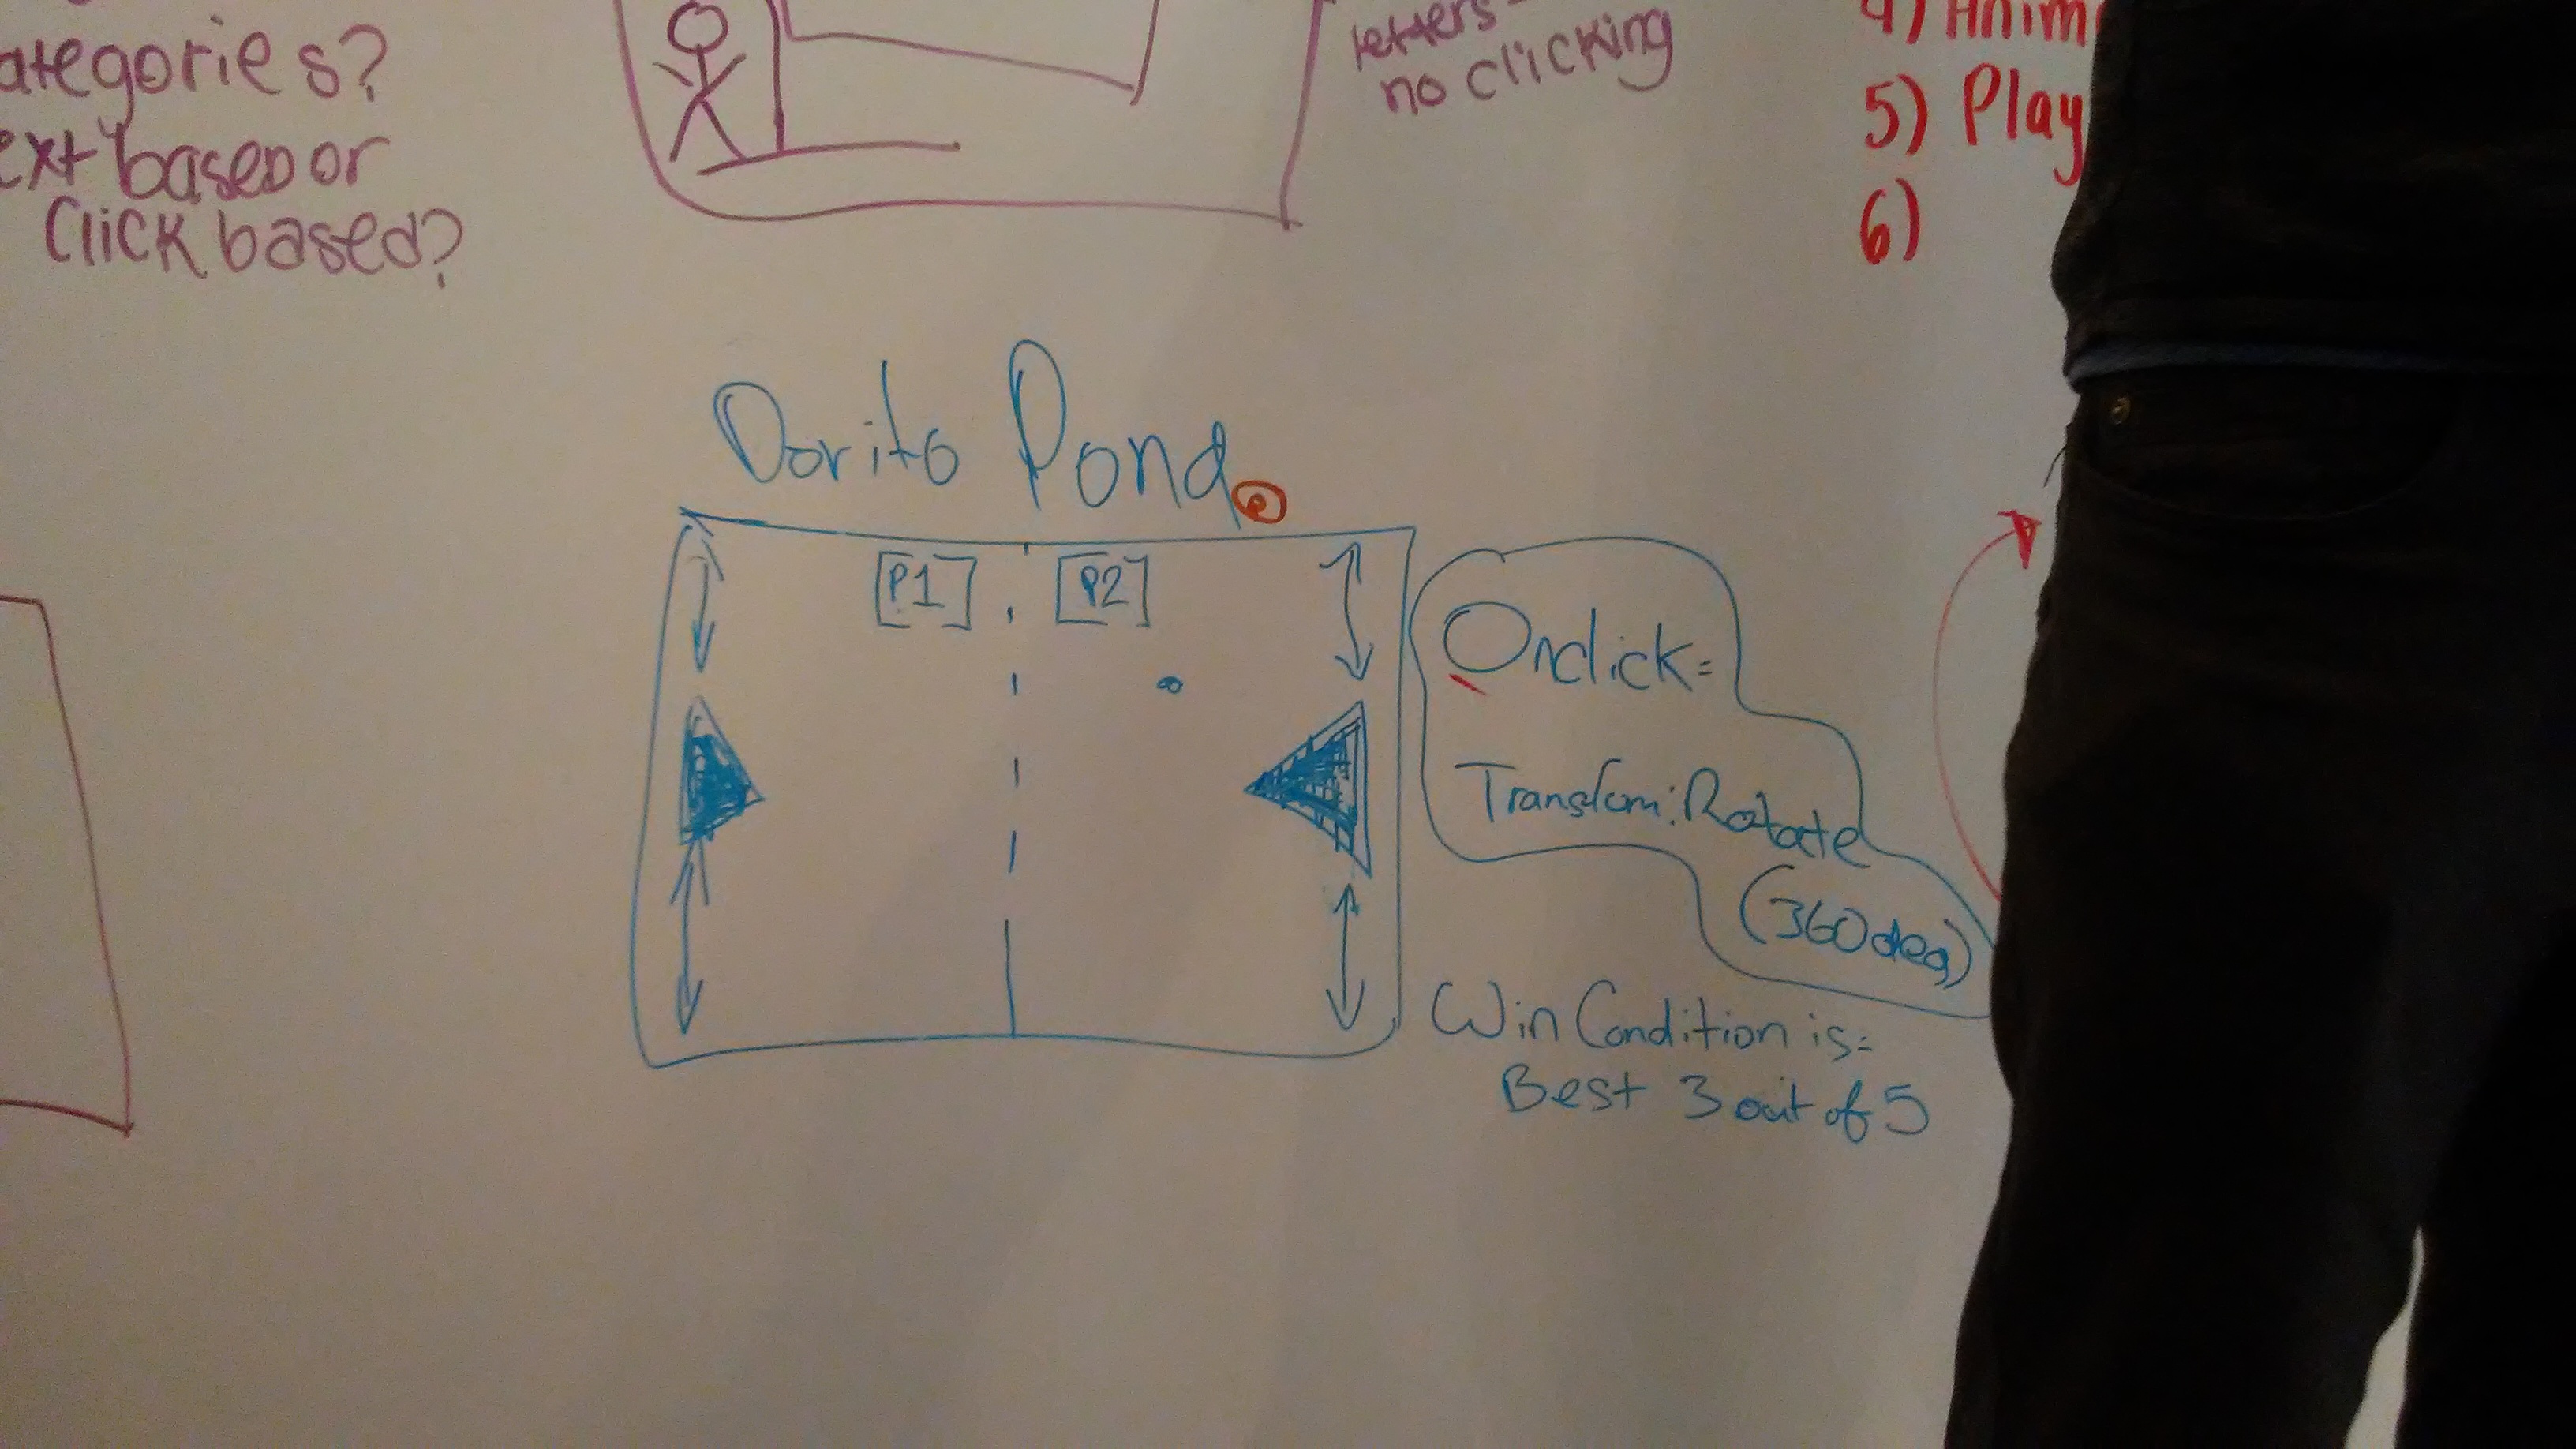 ategories?
ext based or
Click based?
letters
no clicking
4) Anim
5) Play
6)
Dorito Pond
[P1] [P2]
Onclick=
Transform: Rotate
(360deg)
Win Condition is=
Best 3 out of 5